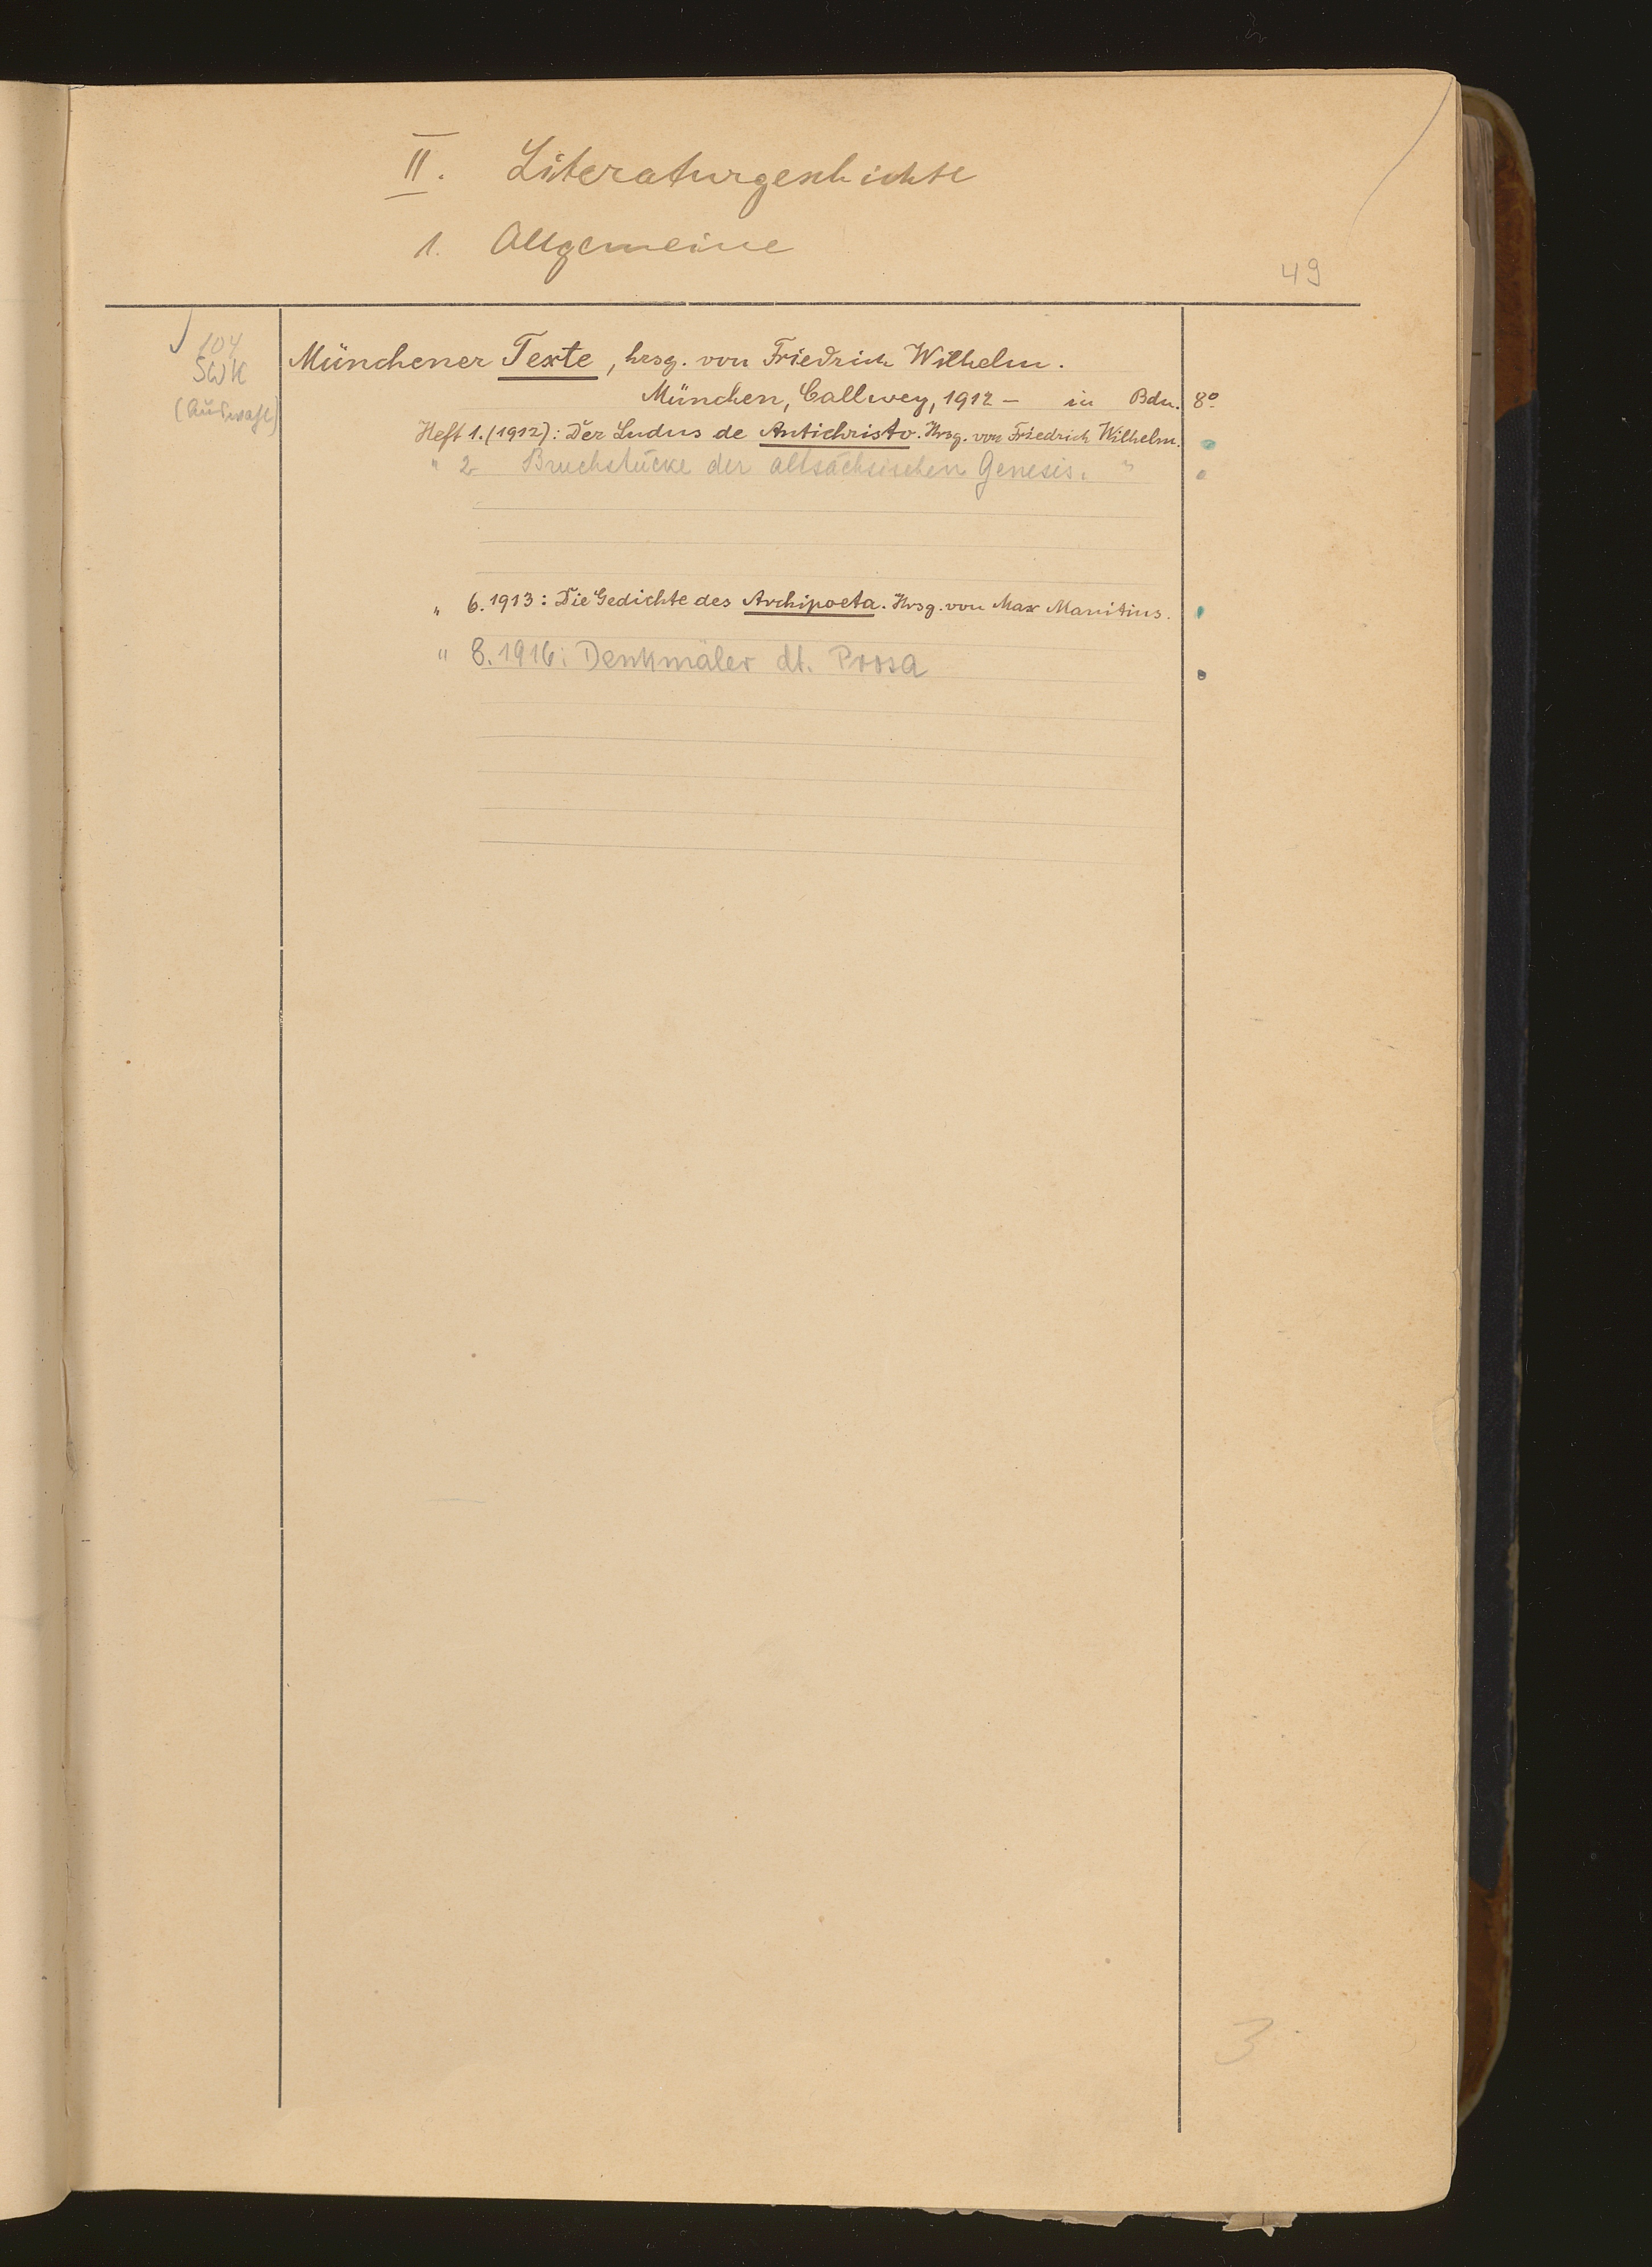 II. Literaturgeschichte
1. Allgemeine
49
104
SWK
(Auswahl)
Münchener Texte, hrsg. von Friedrich Wilhelm.
München, Callwey, 1912 – in Bdn. 8º
Heft 1. (1912): Der Ludus de Antichristo. Hrsg. von Friedrich Wilhelm.
" 2 Bruchstücke der altsächsischen Genesis. "
" 6. 1913: Die Gedichte des Archipoeta. Hrsg. von Max Manitius.
" 8. 1916: Denkmäler dt. Prosa
3